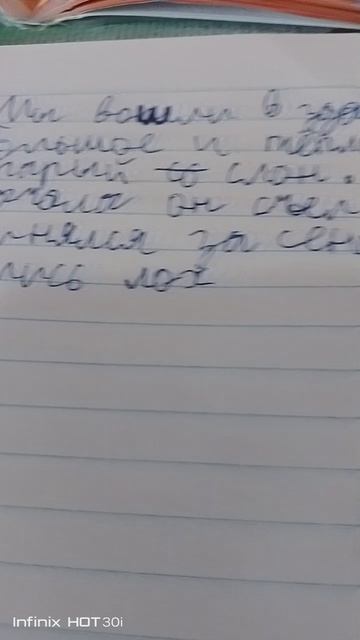 Мы вошли в зда
ольшое и тёпл
тарый слон.
он съел
нялся за сен
лись лох
Infinix HOT 30i